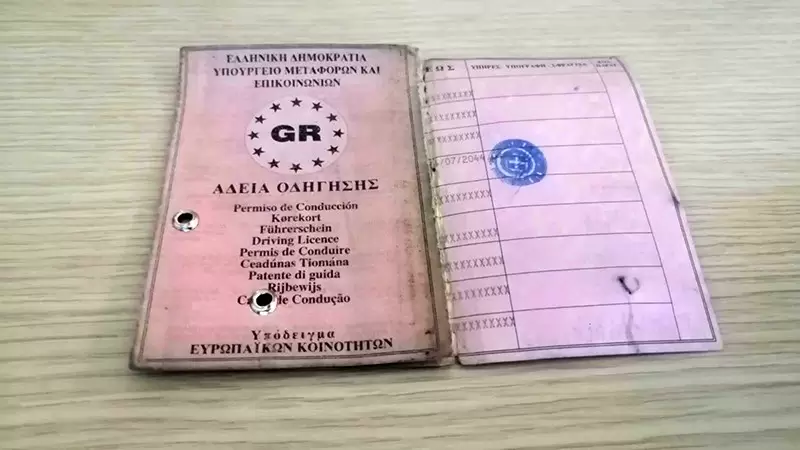 ΕΛΛΗΝΙΚΗ ΔΗΜΟΚΡΑΤΙΑ
ΥΠΟΥΡΓΕΙΟ ΜΕΤΑΦΟΡΩΝ ΚΑΙ
ΕΠΙΚΟΙΝΩΝΙΩΝ
GR
ΑΔΕΙΑ ΟΔΗΓΗΣΗΣ
Permiso de Conducción
Kørekort
Führerschein
Driving Licence
Permis de Conduire
Ceadúnas Tiomána
Patente di guida
Rijbewijs
de Condução
Υπόδειγμα
ΕΥΡΩΠΑΪΚΩΝ ΚΟΙΝΟΤΗΤΩΝ
ΕΩΣ ΥΠΗΡΕΣ ΥΠΟΓΡΑΦΗ
XXXXXXX
XXXXXXX
XXXXXXX
/07/2044
XXXXXXXX
XXXXXXXX
XXXXXXXX
XXXXXXXX
XXXXXXXX